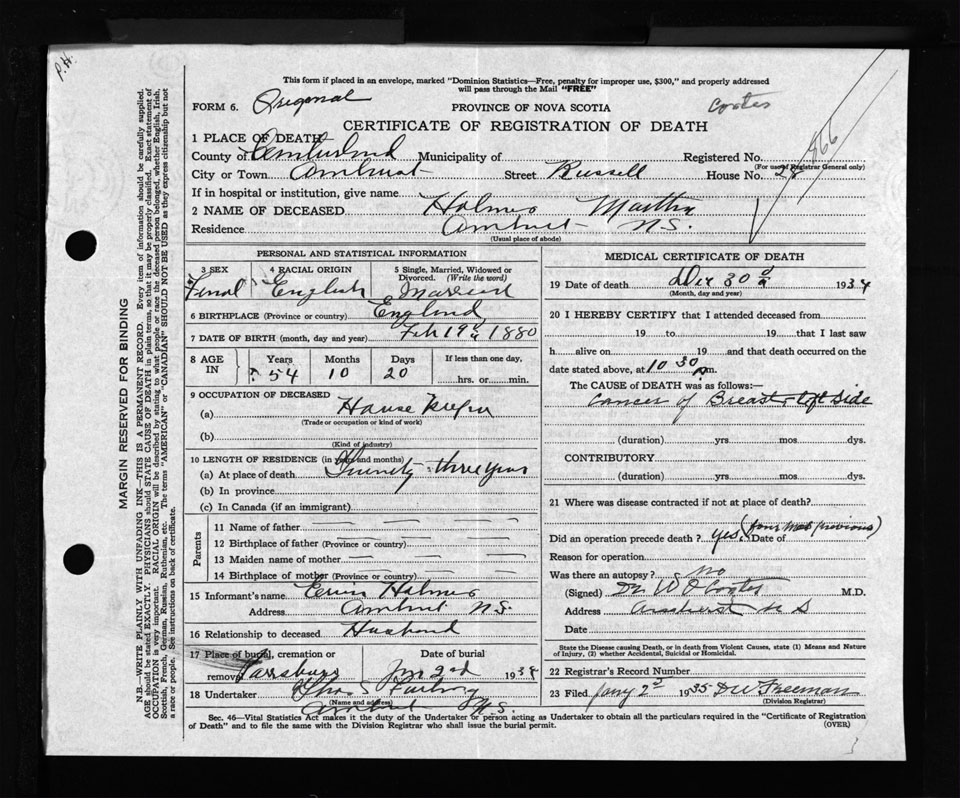 P.H.
This form if placed in an envelope, marked "Dominion Statistics—Free, penalty for improper use, $300," and properly addressed
will pass through the Mail "FREE"
FORM 6.
PROVINCE OF NOVA SCOTIA
Cootes
CERTIFICATE OF REGISTRATION OF DEATH
866
1 PLACE OF DEATH
County of Municipality of Registered No.
(For use of Registrar General only)
City or Town Street Russell House No. 28
If in hospital or institution, give name
2 NAME OF DECEASED Holmes Martha
Residence Amherst N.S.
(Usual place of abode)
PERSONAL AND STATISTICAL INFORMATION
3 SEX 4 RACIAL ORIGIN 5 Single, Married, Widowed or
Divorced. (Write the word)
English Married
6 BIRTHPLACE (Province or country) England
7 DATE OF BIRTH (month, day and year) Feb 19th 1880
8 AGE IN Years Months Days If less than one day,
54 10 20 hrs. or min.
9 OCCUPATION OF DECEASED
(a) House
(Trade or occupation or kind of work)
(b)
(Kind of industry)
10 LENGTH OF RESIDENCE (in years and months)
(a) At place of death three years
(b) In province
(c) In Canada (if an immigrant)
Parents
11 Name of father
12 Birthplace of father (Province or country)
13 Maiden name of mother
14 Birthplace of mother (Province or country)
15 Informant's name Holmes
Address Amherst N.S.
16 Relationship to deceased Husband
17 Place of burial, cremation or removal Date of burial
Parrsboro Jan 2nd 1934
18 Undertaker
(Name and address)
Amherst N.S.
MEDICAL CERTIFICATE OF DEATH
19 Date of death Dec 30 1934
(Month, day and year)
20 I HEREBY CERTIFY that I attended deceased from
19 to 19 that I last saw
h alive on 19 and that death occurred on the
date stated above, at 10 30 m.
The CAUSE OF DEATH was as follows:—
Cancer of Breast left side
(duration) yrs. mos. dys.
CONTRIBUTORY
(duration) yrs. mos. dys.
21 Where was disease contracted if not at place of death?
Did an operation precede death? yes Date of (four previous)
Reason for operation
Was there an autopsy? no
(Signed) Dr W O Cootes M.D.
Address Amherst N S
Date
State the Disease causing Death, or in death from Violent Causes, state (1) Means and Nature
of Injury, (2) whether Accidental, Suicidal or Homicidal.
22 Registrar's Record Number
23 Filed 2nd 1935 Freeman
(Division Registrar)
Sec. 46—Vital Statistics Act makes it the duty of the Undertaker or person acting as Undertaker to obtain all the particulars required in the "Certificate of Registration
of Death" and to file the same with the Division Registrar who shall issue the burial permit. (OVER)
MARGIN RESERVED FOR BINDING
N.B.—WRITE PLAINLY WITH UNFADING INK—THIS IS A PERMANENT RECORD. Every item of information should be carefully supplied.
AGE should be stated EXACTLY. PHYSICIANS should STATE CAUSE OF DEATH in plain terms, so that it may be properly classified. Exact statement of
OCCUPATION is very important. RACIAL ORIGIN will be described by stating to what people or race the deceased person belonged, whether English, Irish,
Scottish, French, German, Russian, Ruthenian, etc. The terms "AMERICAN" or "CANADIAN" SHOULD NOT BE USED as they express citizenship but not
a race or people. See instructions on back of certificate.